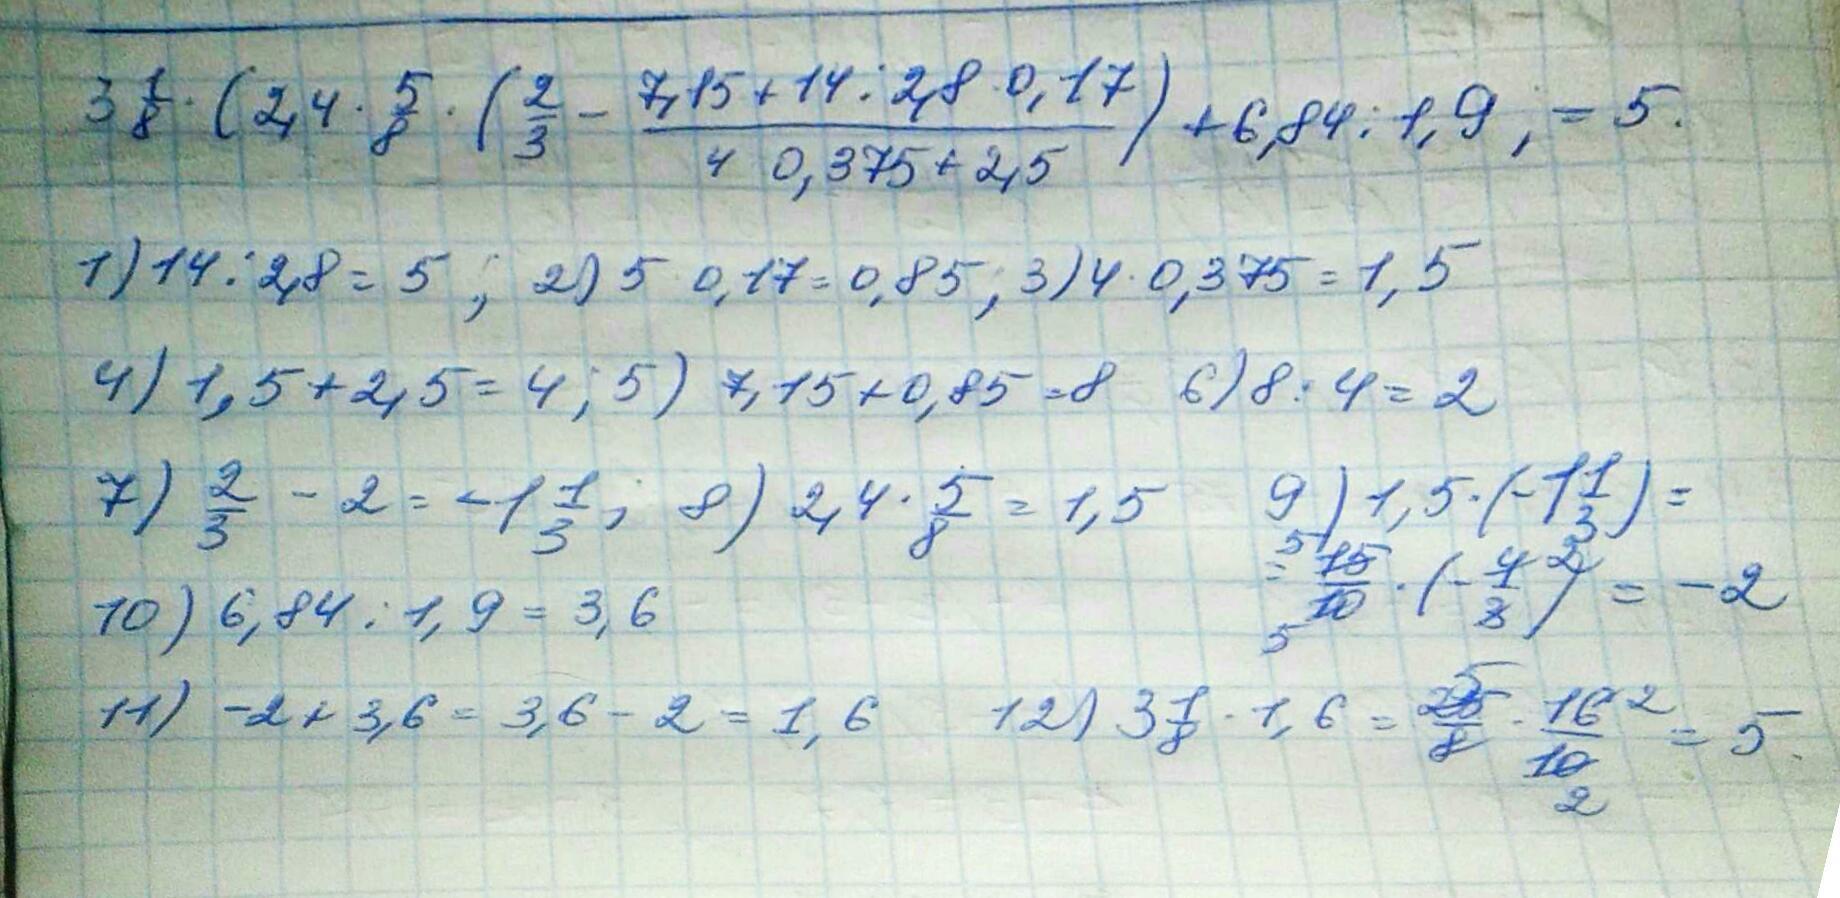 3 1/8 · (2,4 · 5/8 · (2/3 - (7,15 + 14 : 2,8 · 0,17)/(4 0,375 + 2,5)) + 6,84 : 1,9 ; = 5.
1) 14 : 2,8 = 5 ; 2) 5 0,17 = 0,85 ; 3) 4 · 0,375 = 1,5
4) 1,5 + 2,5 = 4 ; 5) 7,15 + 0,85 = 8 6) 8 : 4 = 2
7) 2/3 - 2 = -1 1/3 ; 8) 2,4 · 5/8 = 1,5 9) 1,5 · (-1 1/3) =
= 15/10 · (- 4/3) = -2
10) 6,84 : 1,9 = 3,6
11) -2 + 3,6 = 3,6 - 2 = 1,6 12) 3 1/8 · 1,6 = 25/8 · 16/10 = 5.